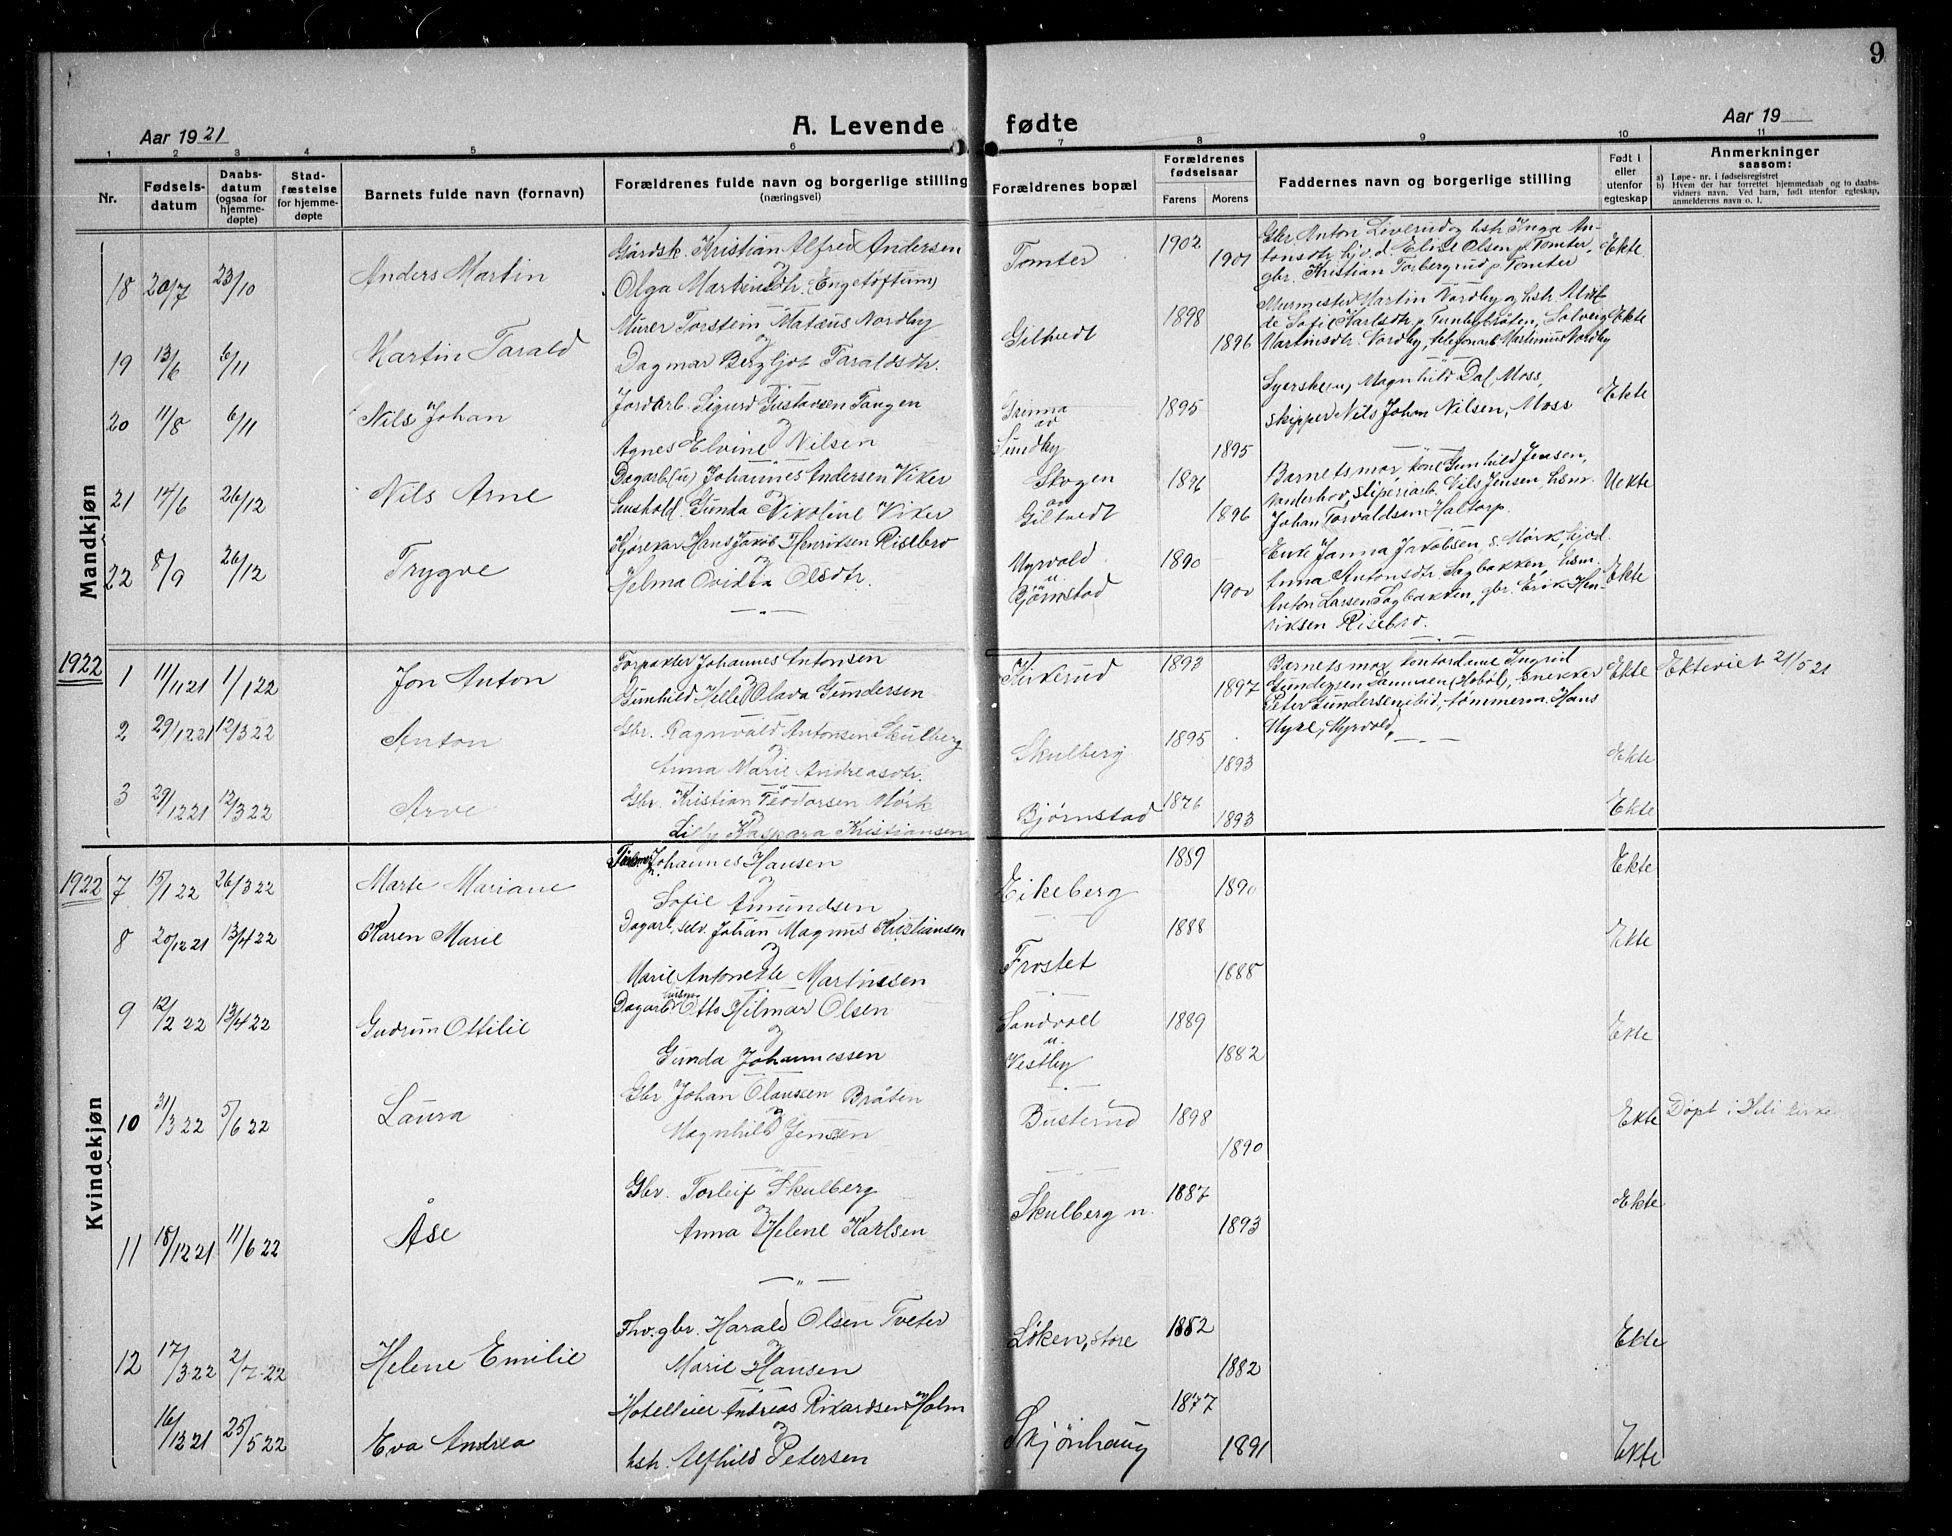 9
Aar 1921
A. Levende fødte
Aar 19
1 2 3 4 5 6 7 8 9 10 11
Nr.
Fødsels-
datum
Daabs-
datum
(ogsaa for
hjemme-
døpte)
Stad-
fæstelse
for hjemme-
døpte
Barnets fulde navn (fornavn)
Forældrenes fulde navn og borgerlige stilling
(næringsvei)
Forældrenes bopæl
Forældrenes
fødselsaar
Farens Morens
Faddernes navn og borgerlige stilling
Født i
eller
utenfor
egteskap
Anmerkninger
saasom:
a) Løpe-nr. i fødselsregistret
b) Hvem der har forrettet hjemmedaab og to daabs-
vidners navn. Ved barn, født utenfor egteskap,
anmelderens navn o. l.
Mandkjøn
18 20/7 23/10 Anders Martin
Gårdsk. Kristian Alfred Andersen
og
Olga Martinsdtr. (Engetoftum)
Tomter 1902 1901
Gbr Anton Liverud og hstr Inga An-
tonsdtr, hj.v.d. Elise Olsen p. Tomter,
gbr. Kristian Torbergrud p. Tomter
Ekte
19 13/6 6/11 Martin Tarald
Murer Torstein Mataus Nordby
og
Dagmar Bergljot Taraldsdtr.
Giltvedt 1898 1896
Murmester Martin Nordby og hstr. Mat-
de Sofie Karlsdtr. p. Solveig
Martinsdtr Nordby, telefonarb Martinus Nordby
Ekte
20 11/8 6/11 Nils Johan
Jordarb. Sigurd Gustavsen Tangen
og
Agnes Elvine Nilsen
Grinna
av
Sundby
1895 1895
Syerske (u) Magnhild Dal, Moss,
skipper Nils Johan Nilsen, Moss
Ekte
21 14/6 26/12 Nils Arne
Dagarb (u) Johannes Andersen Viker
og
hushold. Gunda Nikoline Viker
Skogen
av
Giltvedt
1896 1896
Barnets mor, kone Gunhild Jensen,
sliperiarb. Nils Jensen, hsm.
Johan Torvaldsen Haltorp.
Uekte
22 8/9 26/12 Trygve
Kjørekar Hans Jakob Henriksen Risebro
og
Helma Ovidia Olsdtr.
Myrvold
u.
Bjørnstad
1890 1900
Enke Janna Jakobsen, s. Mörk, hjvd.
Anna Antonsdtr Sagbakken, hsm.
Anton Larsen Sagbakken, gbr. Erik Hen-
riksen Risebro.
Ekte
1922
1 11/11 21 1/1 22 Jon Anton
Forpakter Johannes Antonsen
og
Gunhild Helle Olava Gundersen
Kirkerud 1893 1897
Barnets mor, kontordame Ingrid
Gundersen (Hobøl), snekker
Peter Gundersen ibid, tømmerm. Hans
Myre, Myrvold
Ekte Ekteviet 21/5 21
2 29/12 21 12/3 22 Anton
Gbr. Ragnvald Antonsen Skulberg
og
Anna Marie Andreasdtr.
Skulberg 1895 1893 Ekte
3 29/12 21 12/3 22 Arve
Gbr. Kristian Teodorsen Mørk
Lilly Kaspara Kristiansen
Bjørnstad 1876 1893 Ekte
Kvindekjøn
1922
7 15/1 22 26/3 22 Marte Mariane
Johannes Hansen
og
Sofie Amundsen
Eikeberg 1889 1890 Ekte
8 20/12 21 13/4 22 Karen Marie
Dagarb, selv. Johan Magnus Kristiansen
og
Marie Antonette Martinsen
Frostet 1888 1888 Ekte
9 12/2 22 13/4 22 Gudrun Ottilie
Dagarb, husm. Otto Hilmar Olsen
og
Gunda Johannessen
Sandvoll
u.
Vestby
1889 1882 Ekte
10 31/3 22 5/6 22 Laura
Gbr Johan Olaussen Bråten
og
Magnhild Jensen
Busterud 1898 1890 Ekte Døpt i Heli kirke
11 18/12 21 11/6 22 Åse
Gbr. Torleif Skulberg
og
Anna Helene Karlsen
Skulberg n. 1887 1893 Ekte
12 17/3 22 2/7 22 Helene Emilie
Thv. gbr. Harald Olsen Tveter
og
Marie Hansen
Løken, store 1882 1882 Ekte
16/12 21 25/5 22 Eva Andrea
Hotelleier Andreas Rikardsen Holm
og
hstr. Alfhild Petersen
Skjönhaug 1877 1891 Ekte